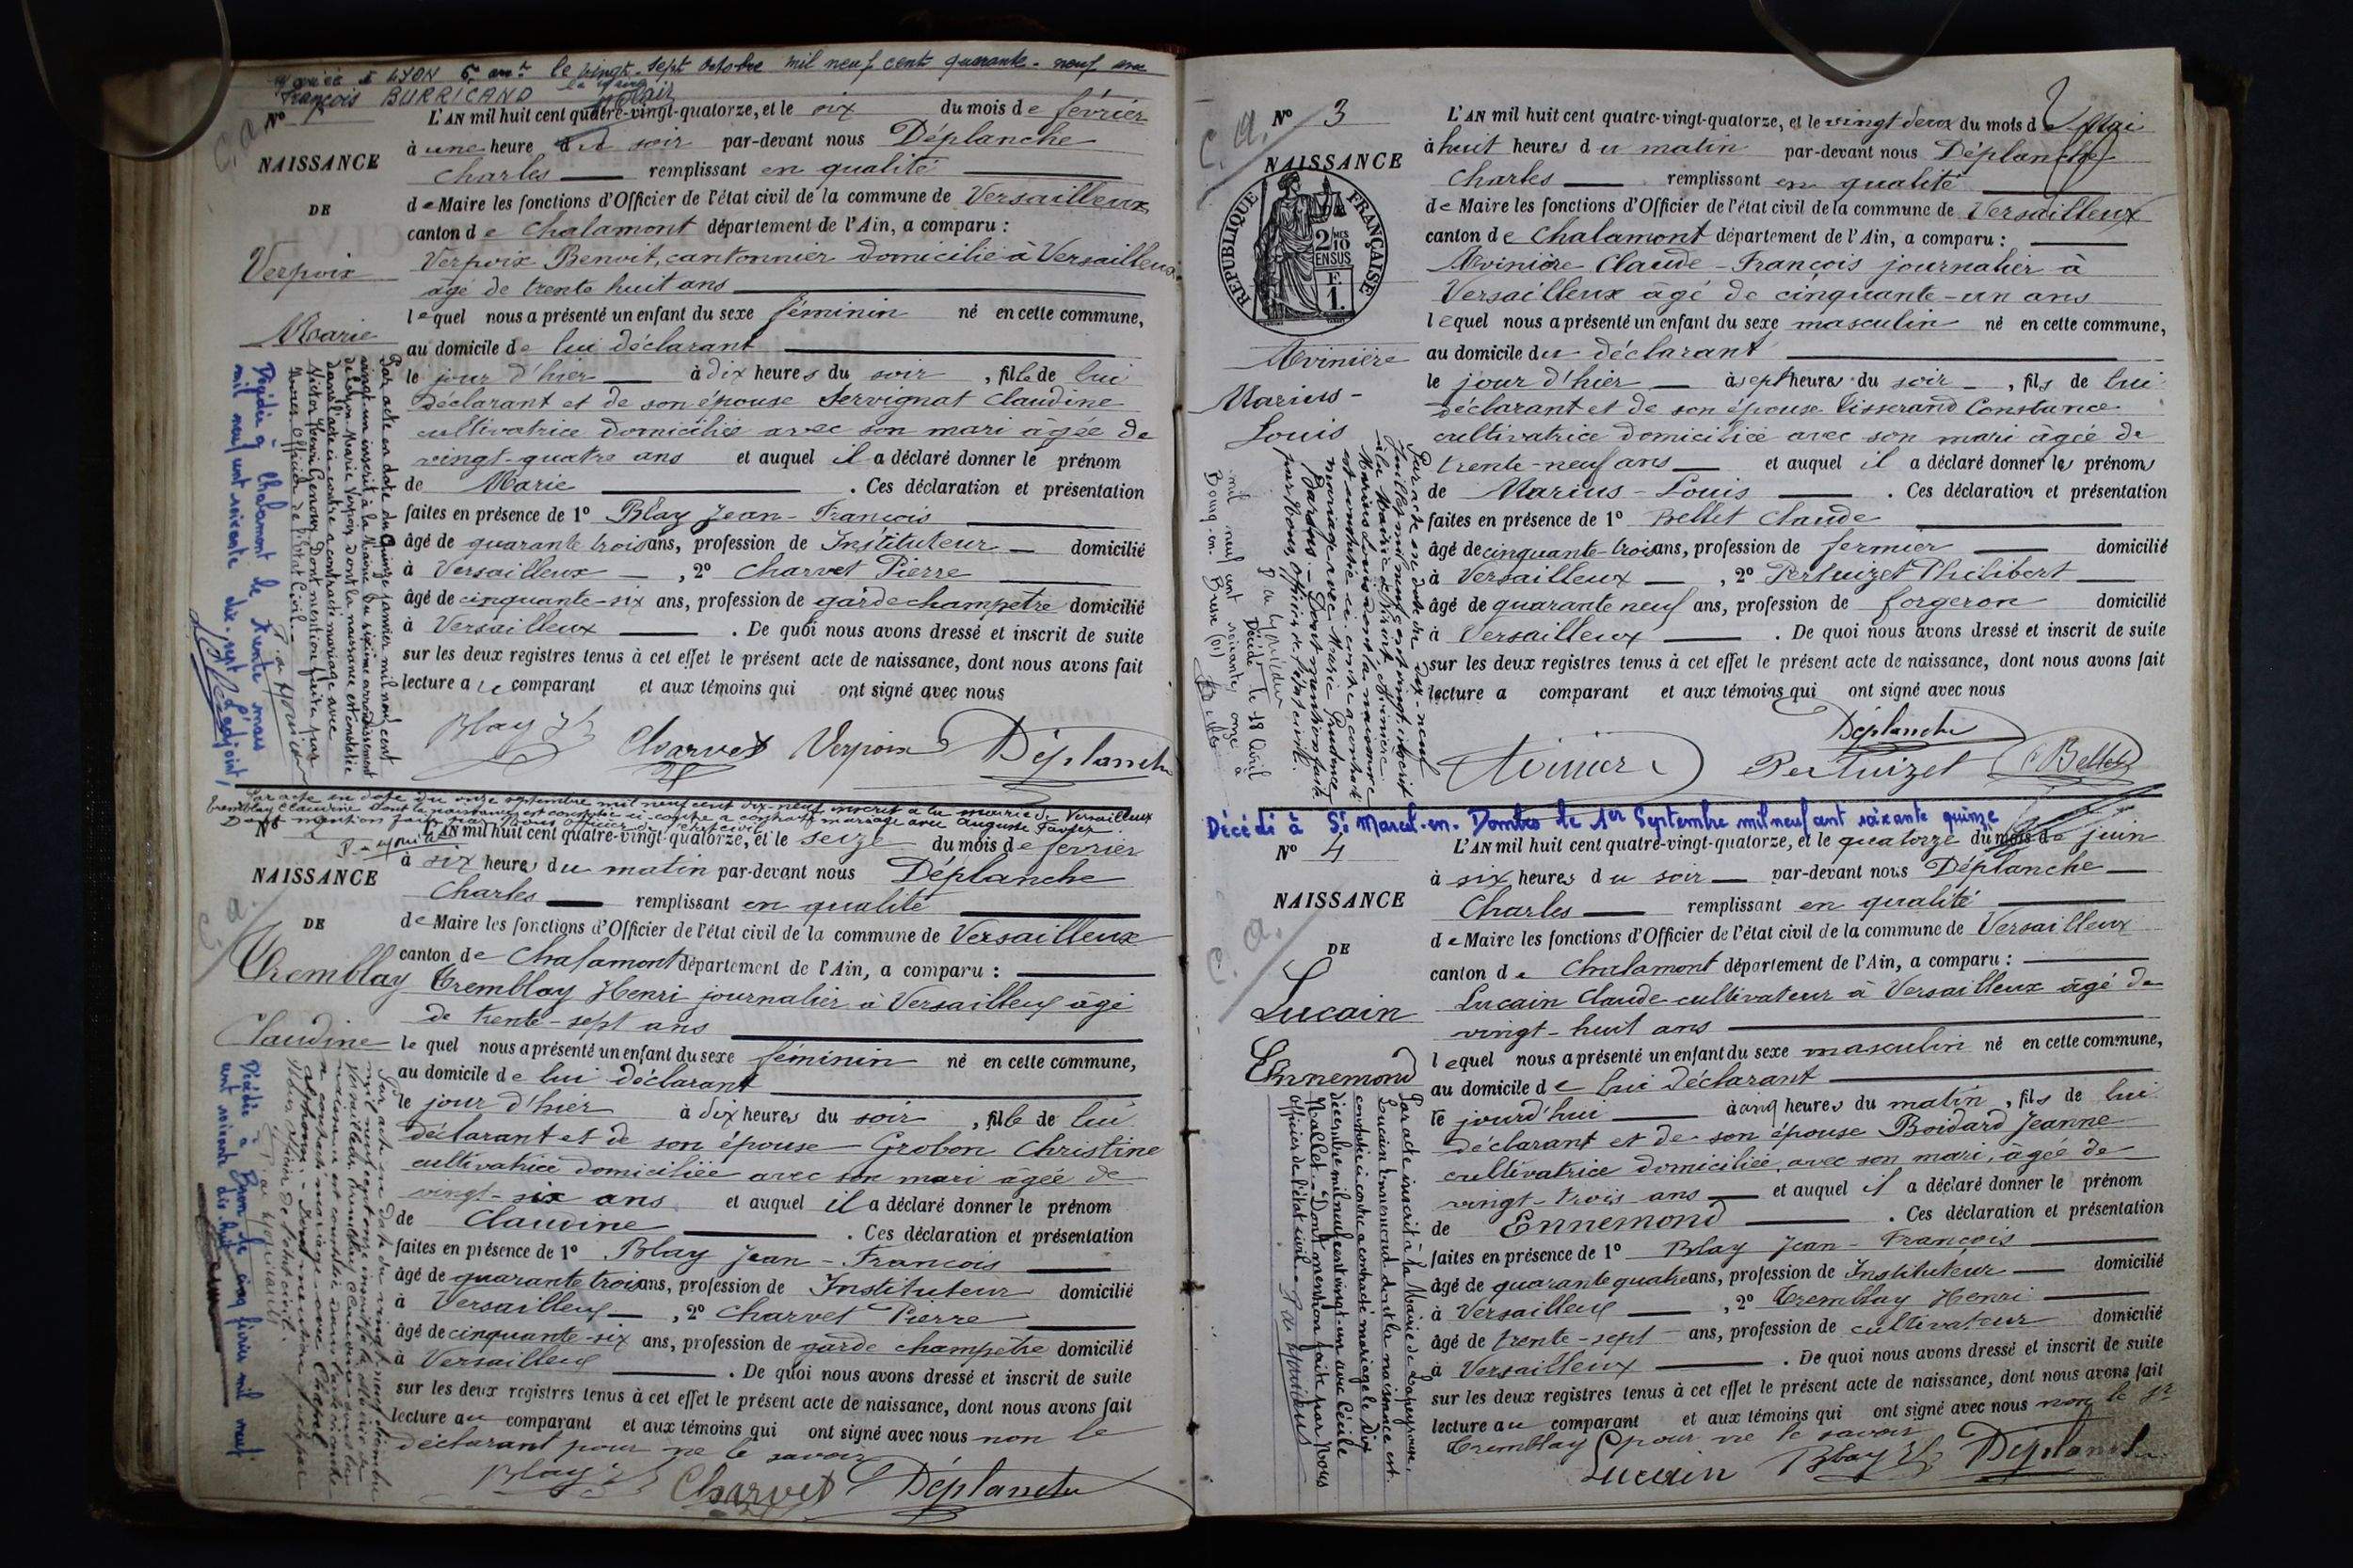 Mariée à LYON 6e arrt le vingt-sept Octobre mil neuf cent quarante-neuf avec
François BURRICAND
le Maire
C. a.
No 1
NAISSANCE
DE
Verpoix
Marie
L'AN mil huit cent quatre-vingt-quatorze, et le six du mois de février
à une heure du soir par-devant nous Déplanche
Charles remplissant en qualité
de Maire les fonctions d'Officier de l'état civil de la commune de Versailleux
canton de Chalamont département de l'Ain, a comparu :
Verpoix Benoit, cantonnier domicilié à Versailleux
âgé de trente huit ans
lequel nous a présenté un enfant du sexe féminin né en cette commune,
au domicile de lui déclarant
le jour d'hier à dix heures du soir, fille de lui
déclarant et de son épouse Servignat Claudine
cultivatrice domiciliée avec son mari âgée de
vingt-quatre ans et auquel il a déclaré donner le prénom
de Marie . Ces déclaration et présentation
faites en présence de 1o Blay Jean-François
âgé de quarante trois ans, profession de Instituteur domicilié
à Versailleux , 2o Charvet Pierre
âgé de cinquante-six ans, profession de garde champêtre domicilié
à Versailleux . De quoi nous avons dressé et inscrit de suite
sur les deux registres tenus à cet effet le présent acte de naissance, dont nous avons fait
lecture au comparant et aux témoins qui ont signé avec nous
Blay Charvet Verpoix Déplanche
Par acte en date du quinze janvier mil neuf cent
vingt-un inscrit à la Mairie du sixième arrondissement
de Lyon Marie Verpoix dont la naissance est constatée
dans l'acte ci-contre a contracté mariage avec
Victor Dont mention faite par
Nous Officier de l'Etat Civil.
Décédée à Chalamont le trente mars
mil neuf cent soixante dix-sept
l'adjoint,
Par acte en date du onze septembre mil neuf cent dix-neuf inscrit à la mairie de Versailleux
Tremblay Claudine dont la naissance est constatée ci-contre a contracté mariage avec Auguste Favier.
Dont mention faite par Nous Officier de l'état civil
No 2
NAISSANCE
C. a.
DE
Tremblay
Claudine
L'AN mil huit cent quatre-vingt-quatorze, et le seize du mois de février
à six heures du matin par-devant nous Déplanche
Charles remplissant en qualité
de Maire les fonctions d'Officier de l'état civil de la commune de Versailleux
canton de Chalamont département de l'Ain, a comparu :
Tremblay Henri journalier à Versailleux âgé
de trente-sept ans
lequel nous a présenté un enfant du sexe féminin né en cette commune,
au domicile de lui déclarant
le jour d'hier à dix heures du soir, fille de lui
déclarant et de son épouse Grobon Christine
cultivatrice domiciliée avec son mari âgée de
vingt-six ans et auquel il a déclaré donner le prénom
de Claudine . Ces déclaration et présentation
faites en présence de 1o Blay Jean-François
âgé de quarante trois ans, profession de Instituteur domicilié
à Versailleux , 2o Charvet Pierre
âgé de cinquante-six ans, profession de garde champêtre domicilié
à Versailleux . De quoi nous avons dressé et inscrit de suite
sur les deux registres tenus à cet effet le présent acte de naissance, dont nous avons fait
lecture au comparant et aux témoins qui ont signé avec nous non le
déclarant pour ne le savoir
Blay Charvet Déplanche
Par acte en date du vingt neuf
mil neuf cent onze inscrit à la Mairie de
Versailleux Tremblay Claudine dont la
naissance est constatée dans l'acte ci-contre
a contracté mariage avec
Alphonse. Dont mention faite par
Nous Officier de l'état civil.
Décédée à Bron le cinq février mil neuf
cent soixante dix huit
C. a.
No 3
NAISSANCE
REPUBLIQUE FRANÇAISE
2/10MES
EN SUS
F.
1.
Avinière
Marius-
Louis
L'AN mil huit cent quatre-vingt-quatorze, et le vingt deux du mois de Mai
à huit heures du matin par-devant nous Déplanche
Charles remplissant en qualité
de Maire les fonctions d'Officier de l'état civil de la commune de Versailleux
canton de Chalamont département de l'Ain, a comparu :
Avinière Claude-François journalier à
Versailleux âgé de cinquante-un ans
lequel nous a présenté un enfant du sexe masculin né en cette commune,
au domicile du déclarant
le jour d'hier à sept heures du soir, fils de lui
déclarant et de son épouse Tisserand Constance
cultivatrice domiciliée avec son mari âgée de
trente-neuf ans et auquel il a déclaré donner les prénoms
de Marius-Louis . Ces déclaration et présentation
faites en présence de 1o Bellet Claude
âgé de cinquante-trois ans, profession de fermier domicilié
à Versailleux , 2o Pertuizet Philibert
âgé de quarante neuf ans, profession de forgeron domicilié
à Versailleux . De quoi nous avons dressé et inscrit de suite
sur les deux registres tenus à cet effet le présent acte de naissance, dont nous avons fait
lecture a comparant et aux témoins qui ont signé avec nous
Déplanche
Avinière Pertuizet Bellet
Par acte en date du dix-neuf
Juillet mil neuf cent vingt, inscrit
à la Mairie de Avinière
Marius Louis dont la naissance
est constatée ci-contre a contracté
mariage avec Marie Prudence
Dont mention faite
par Nous, Officier de l'état civil.
Décédé le 18 Avril
mil neuf cent soixante onze à
Bourg en Bresse (01)
Décédé à St Marcel-en-Dombes le 1er Septembre mil neuf cent soixante quinze
No 4
NAISSANCE
C. a.
DE
Lucain
Ennemond
L'AN mil huit cent quatre-vingt-quatorze, et le quatorze du mois de juin
à six heures du soir par-devant nous Déplanche
Charles remplissant en qualité
de Maire les fonctions d'Officier de l'état civil de la commune de Versailleux
canton de Chalamont département de l'Ain, a comparu :
Lucain Claude cultivateur à Versailleux âgé de
vingt-huit ans
lequel nous a présenté un enfant du sexe masculin né en cette commune,
au domicile de lui déclarant
le jourd'hui à cinq heures du matin, fils de lui
déclarant et de son épouse Boidard Jeanne
cultivatrice domiciliée avec son mari, âgée de
vingt-trois ans et auquel il a déclaré donner le prénom
de Ennemond . Ces déclaration et présentation
faites en présence de 1o Blay Jean-François
âgé de quarante quatre ans, profession de Instituteur domicilié
à Versailleux , 2o Tremblay Henri
âgé de trente-sept ans, profession de cultivateur domicilié
à Versailleux . De quoi nous avons dressé et inscrit de suite
sur les deux registres tenus à cet effet le présent acte de naissance, dont nous avons fait
lecture au comparant et aux témoins qui ont signé avec nous non le Sr
Tremblay pour ne le savoir
Lucain Blay Déplanche
Par acte inscrit à la Mairie de Lapeyrouse,
Lucain Ennemond dont la naissance est
constatée ci-contre a contracté mariage le dix
décembre mil neuf cent vingt-un avec Cécile
Mallet. Dont mention faite par Nous
Officier de l'état civil.